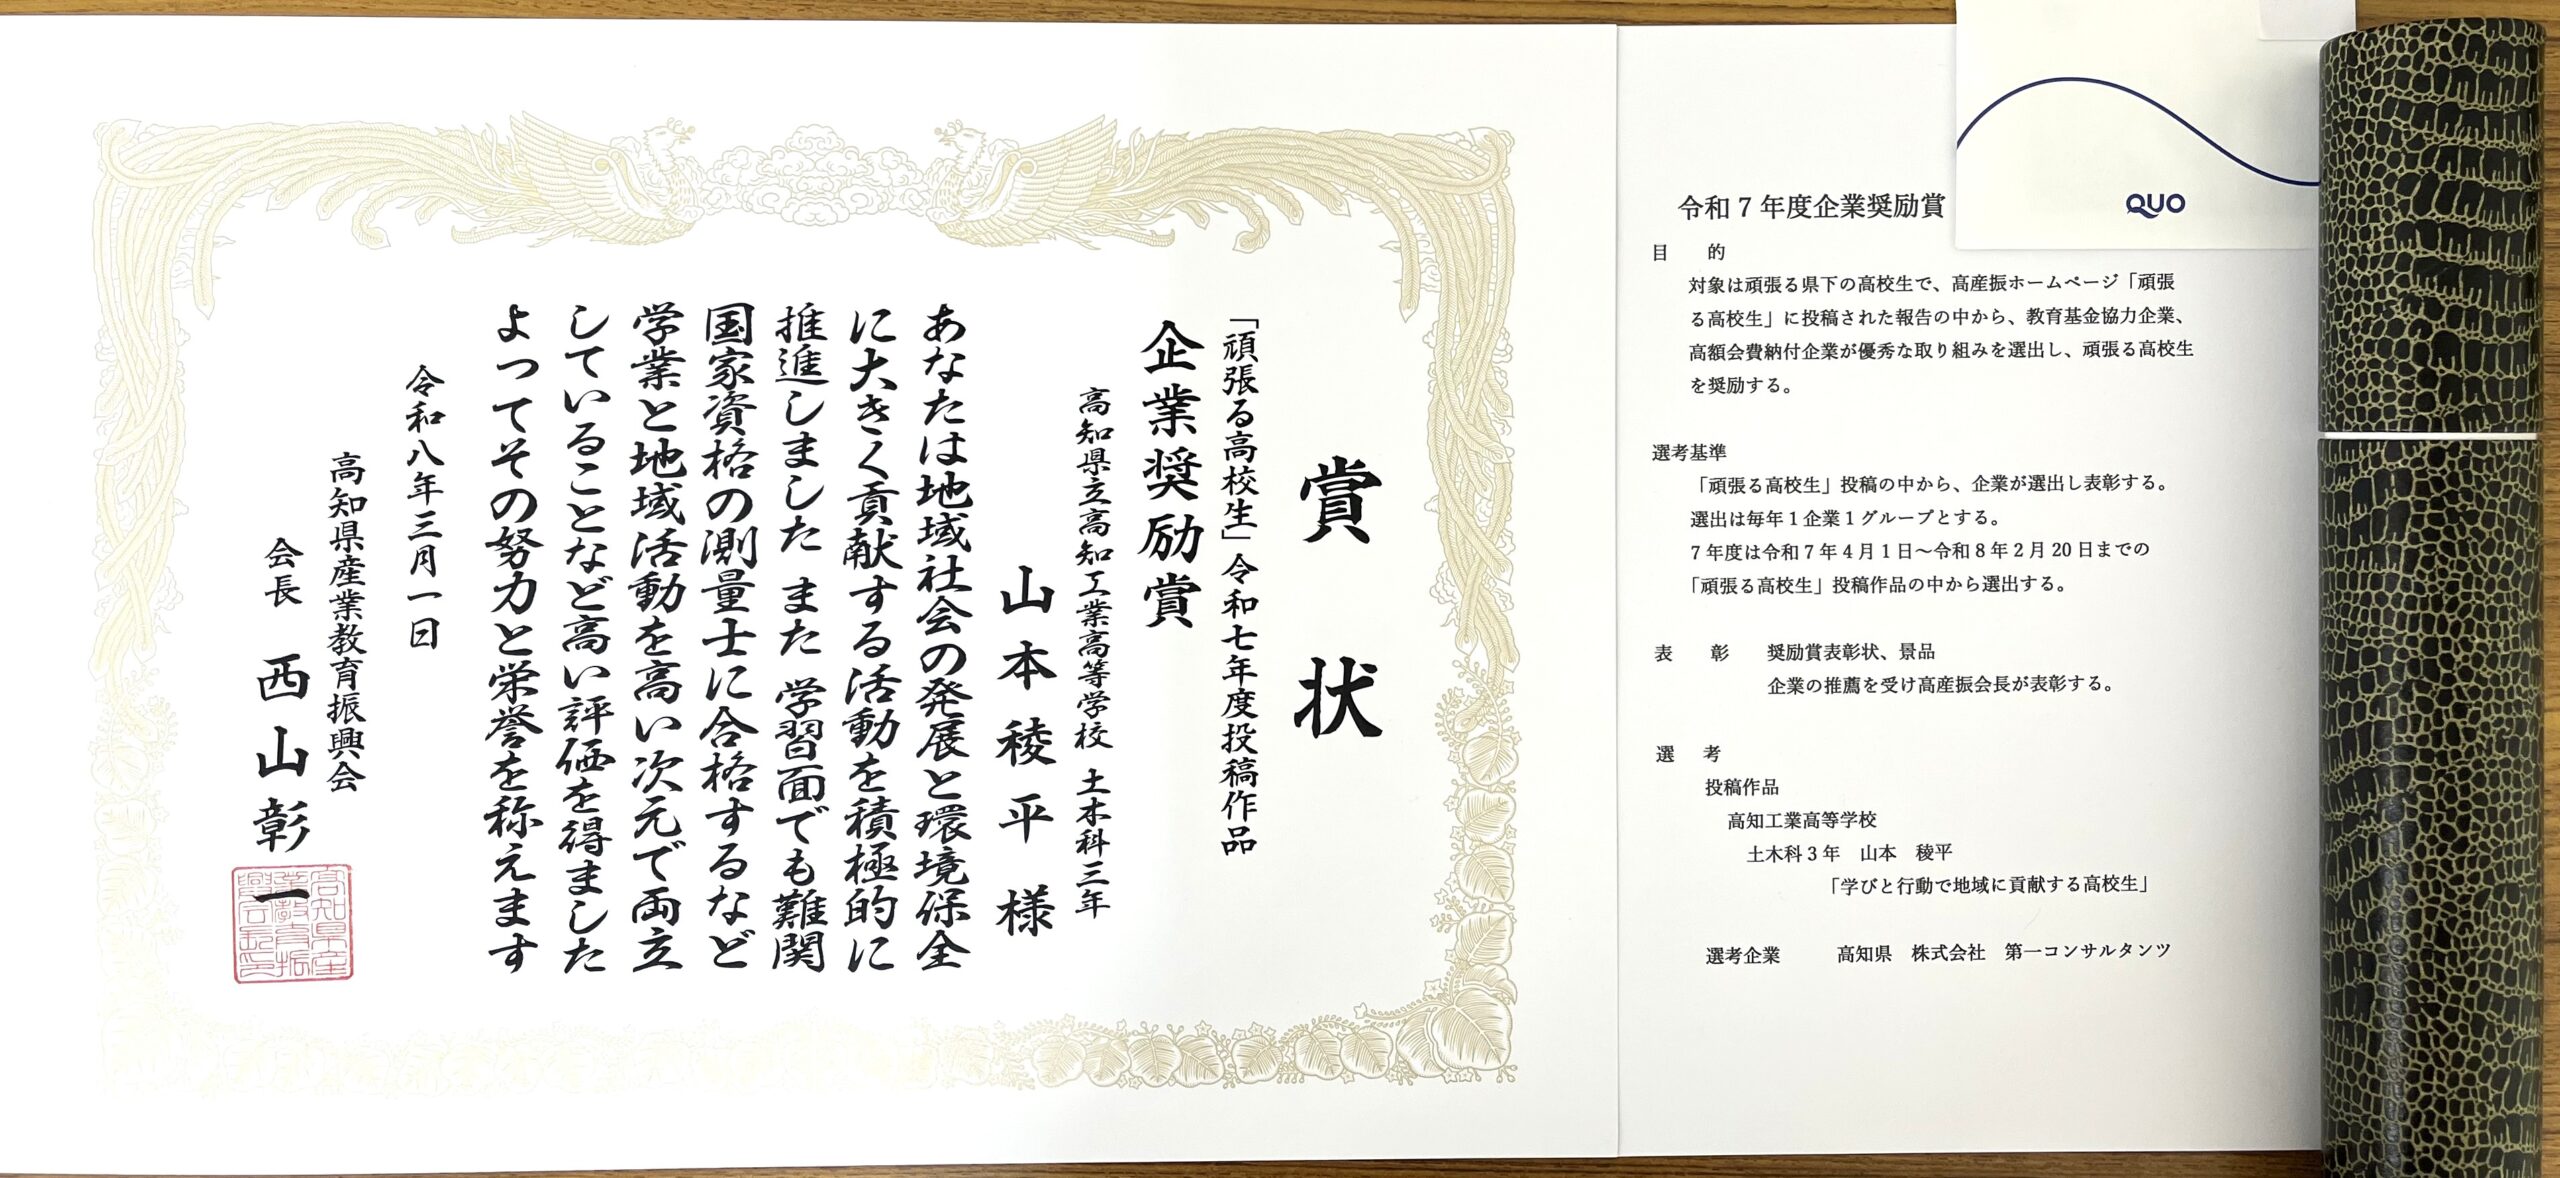 賞状
「頑張る高校生」令和七年度投稿作品
企業奨励賞
高知県立高知工業高等学校 土木科三年
山本稜平 様
あなたは地域社会の発展と環境保全
に大きく貢献する活動を積極的に
推進しました また 学習面でも難関
国家資格の測量士に合格するなど
学業と地域活動を高い次元で両立
していることなど高い評価を得ました
よってその努力と栄誉を称えます
令和八年三月一日
高知県産業教育振興会
会長 西山彰一
令和7年度企業奨励賞
目 的
対象は頑張る県下の高校生で、高産振ホームページ「頑張
る高校生」に投稿された報告の中から、教育基金協力企業、
高額会費納付企業が優秀な取り組みを選出し、頑張る高校生
を奨励する。
選考基準
「頑張る高校生」投稿の中から、企業が選出し表彰する。
選出は毎年1企業1グループとする。
7年度は令和7年4月1日～令和8年2月20日までの
「頑張る高校生」投稿作品の中から選出する。
表 彰 奨励賞表彰状、景品
企業の推薦を受け高産振会長が表彰する。
選 考
投稿作品
高知工業高等学校
土木科3年 山本 稜平
「学びと行動で地域に貢献する高校生」
選考企業 高知県 株式会社 第一コンサルタンツ
QUO